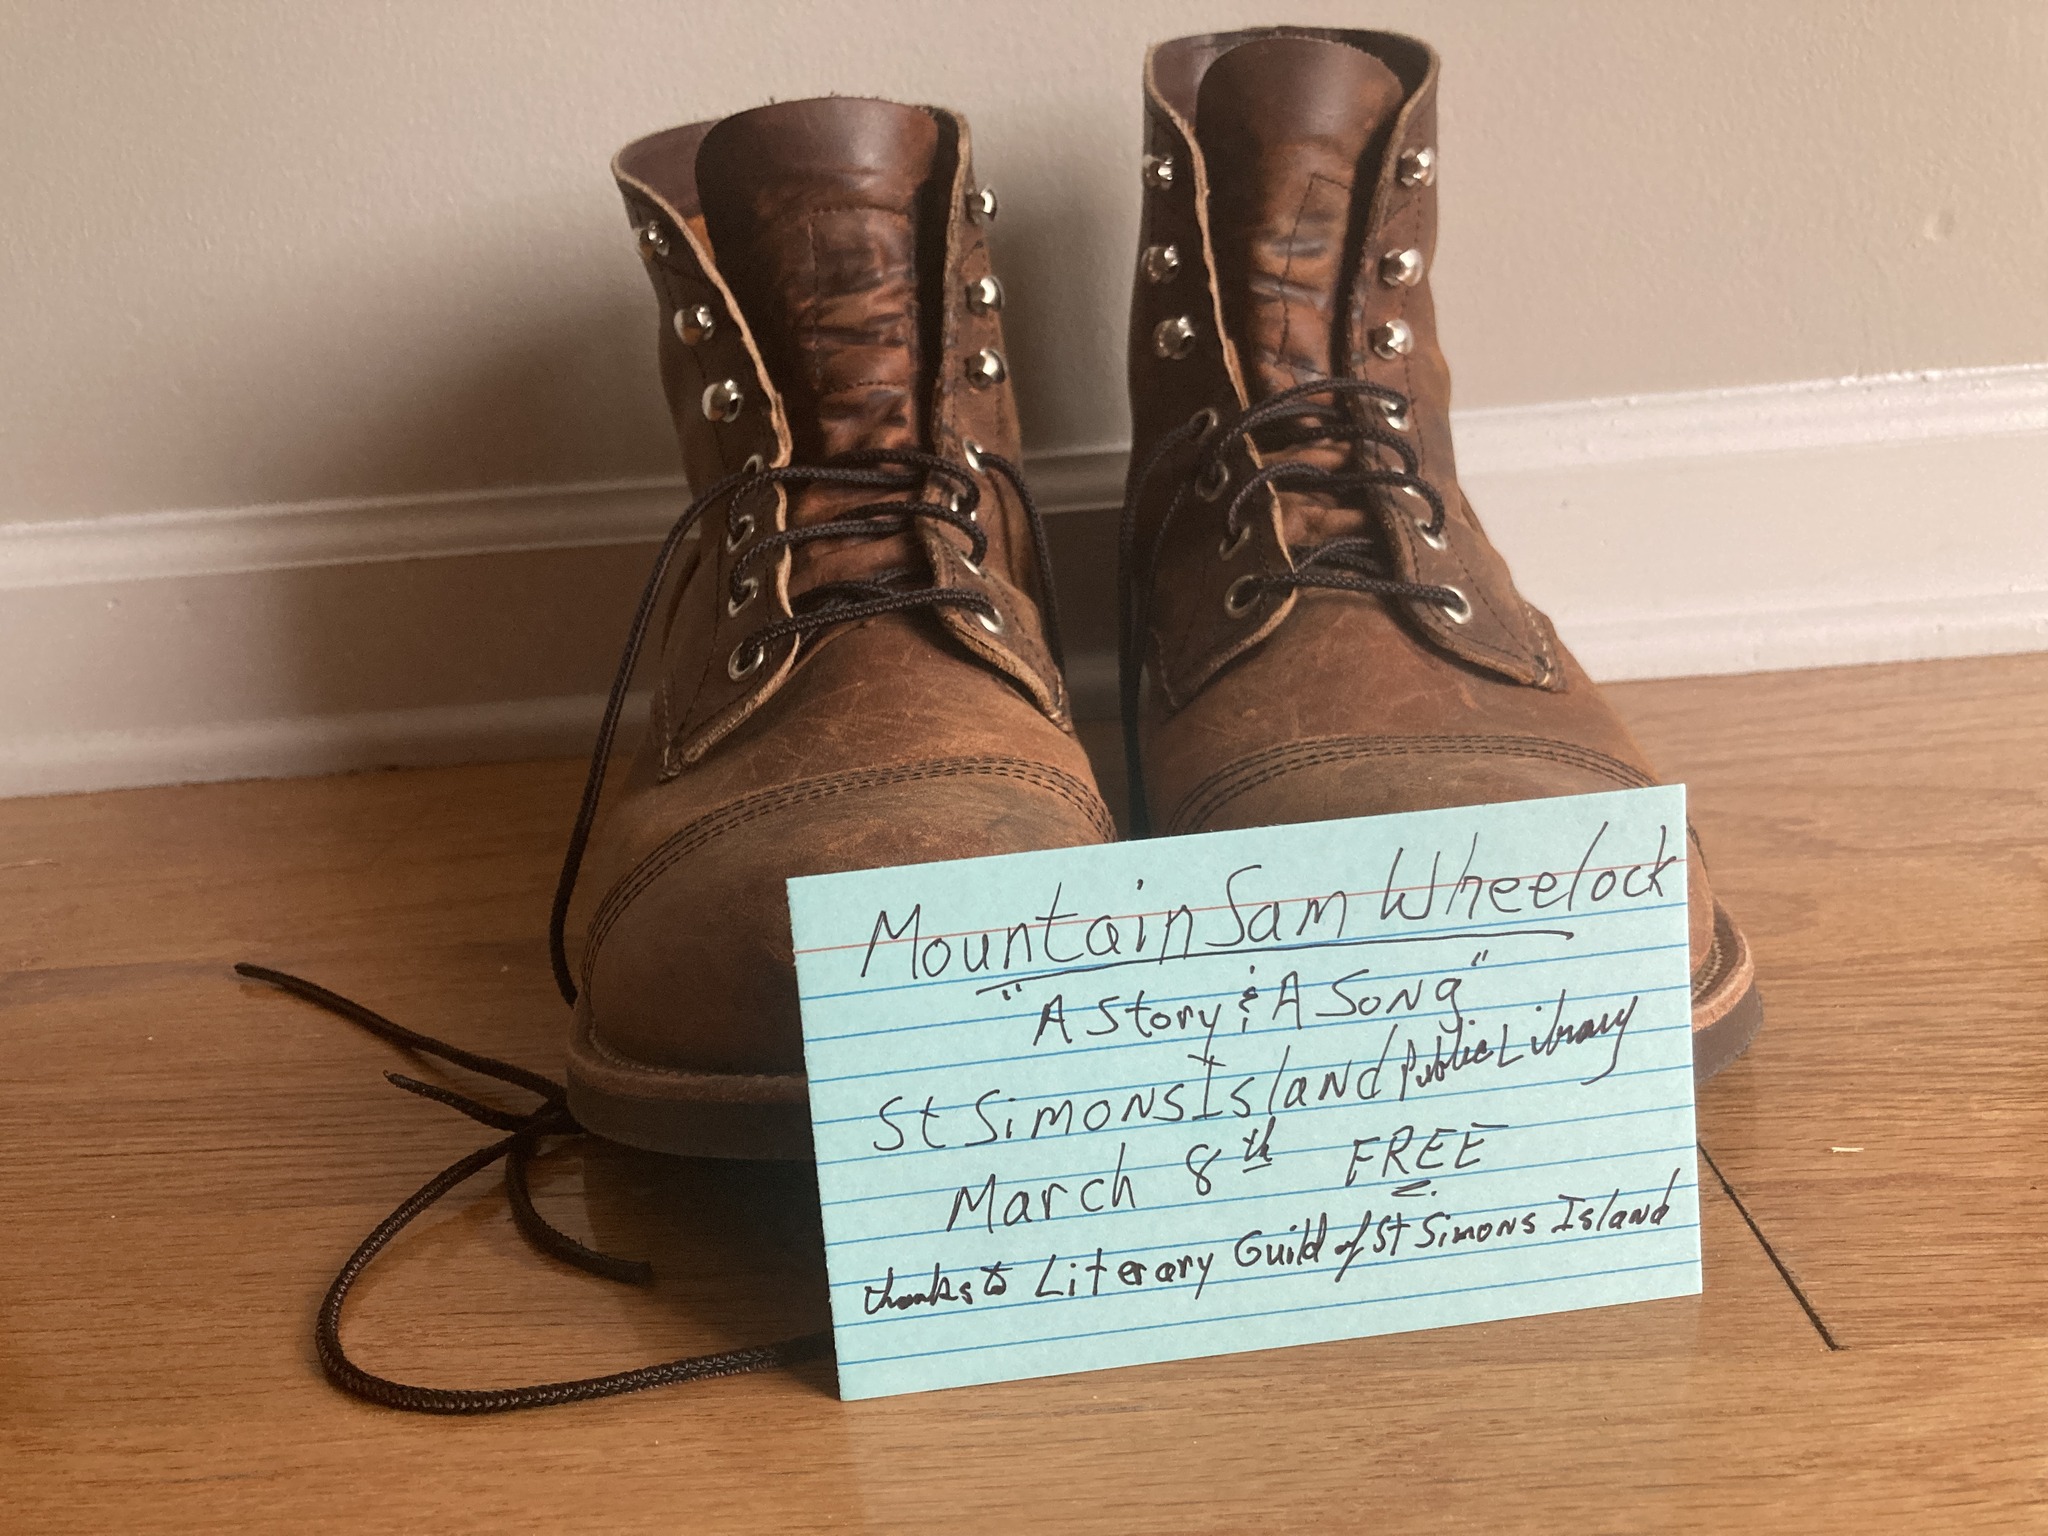 Mountain Sam Wheelock
"A Story & A Song"
St Simons Island Public Library
March 8th FREE
thanks to Literary Guild of St Simons Island